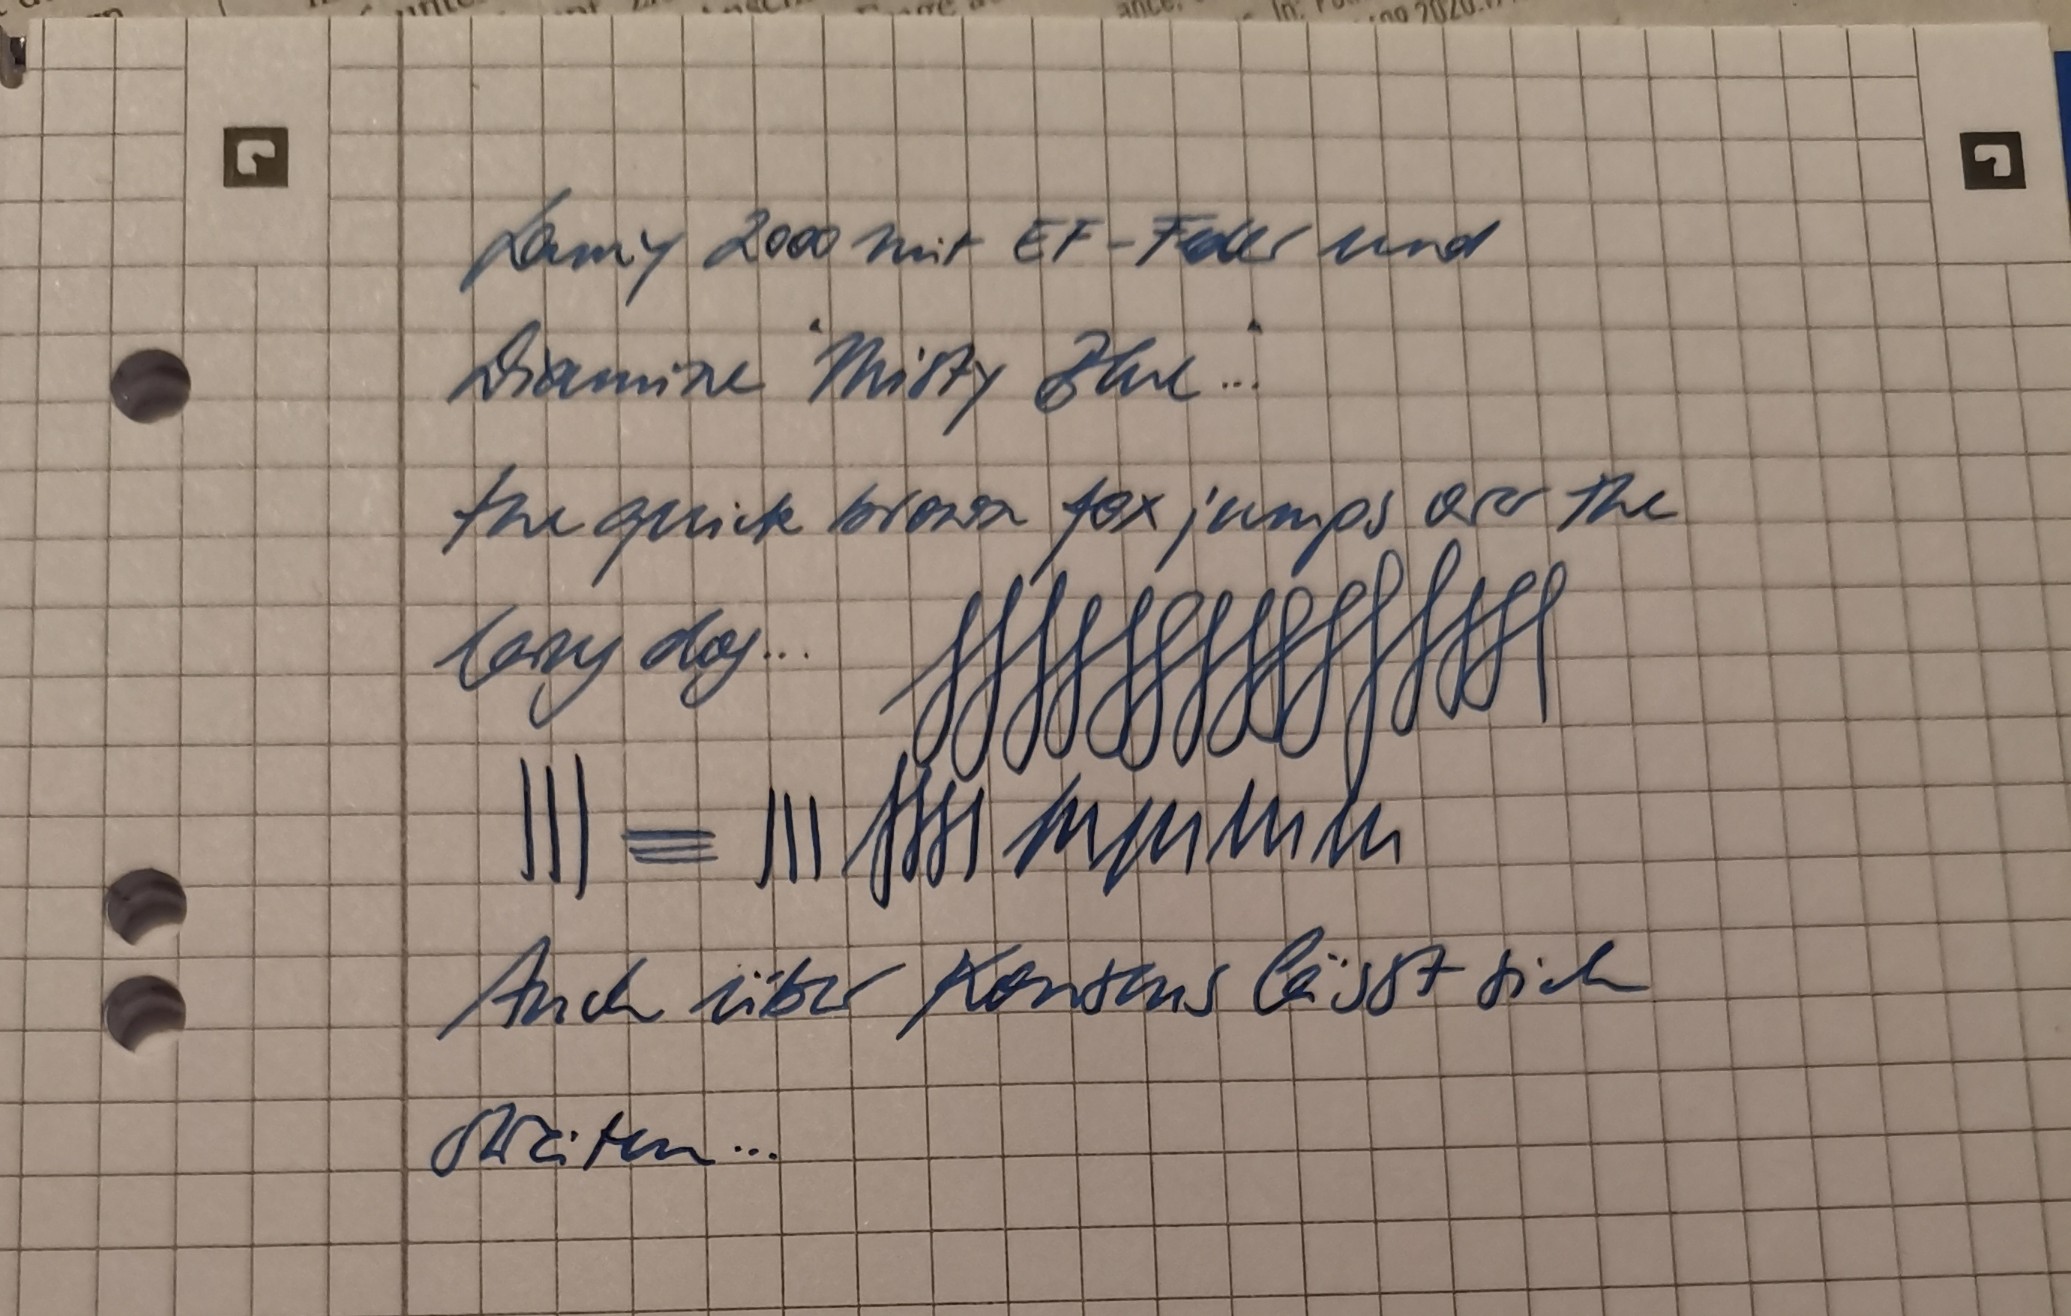 Lamy 2000 mit EF-Feder und
Diamine "Misty Blue..."
the quick brown fox jumps over the
lazy dog...
Auch über Konsens lässt sich
streiten...